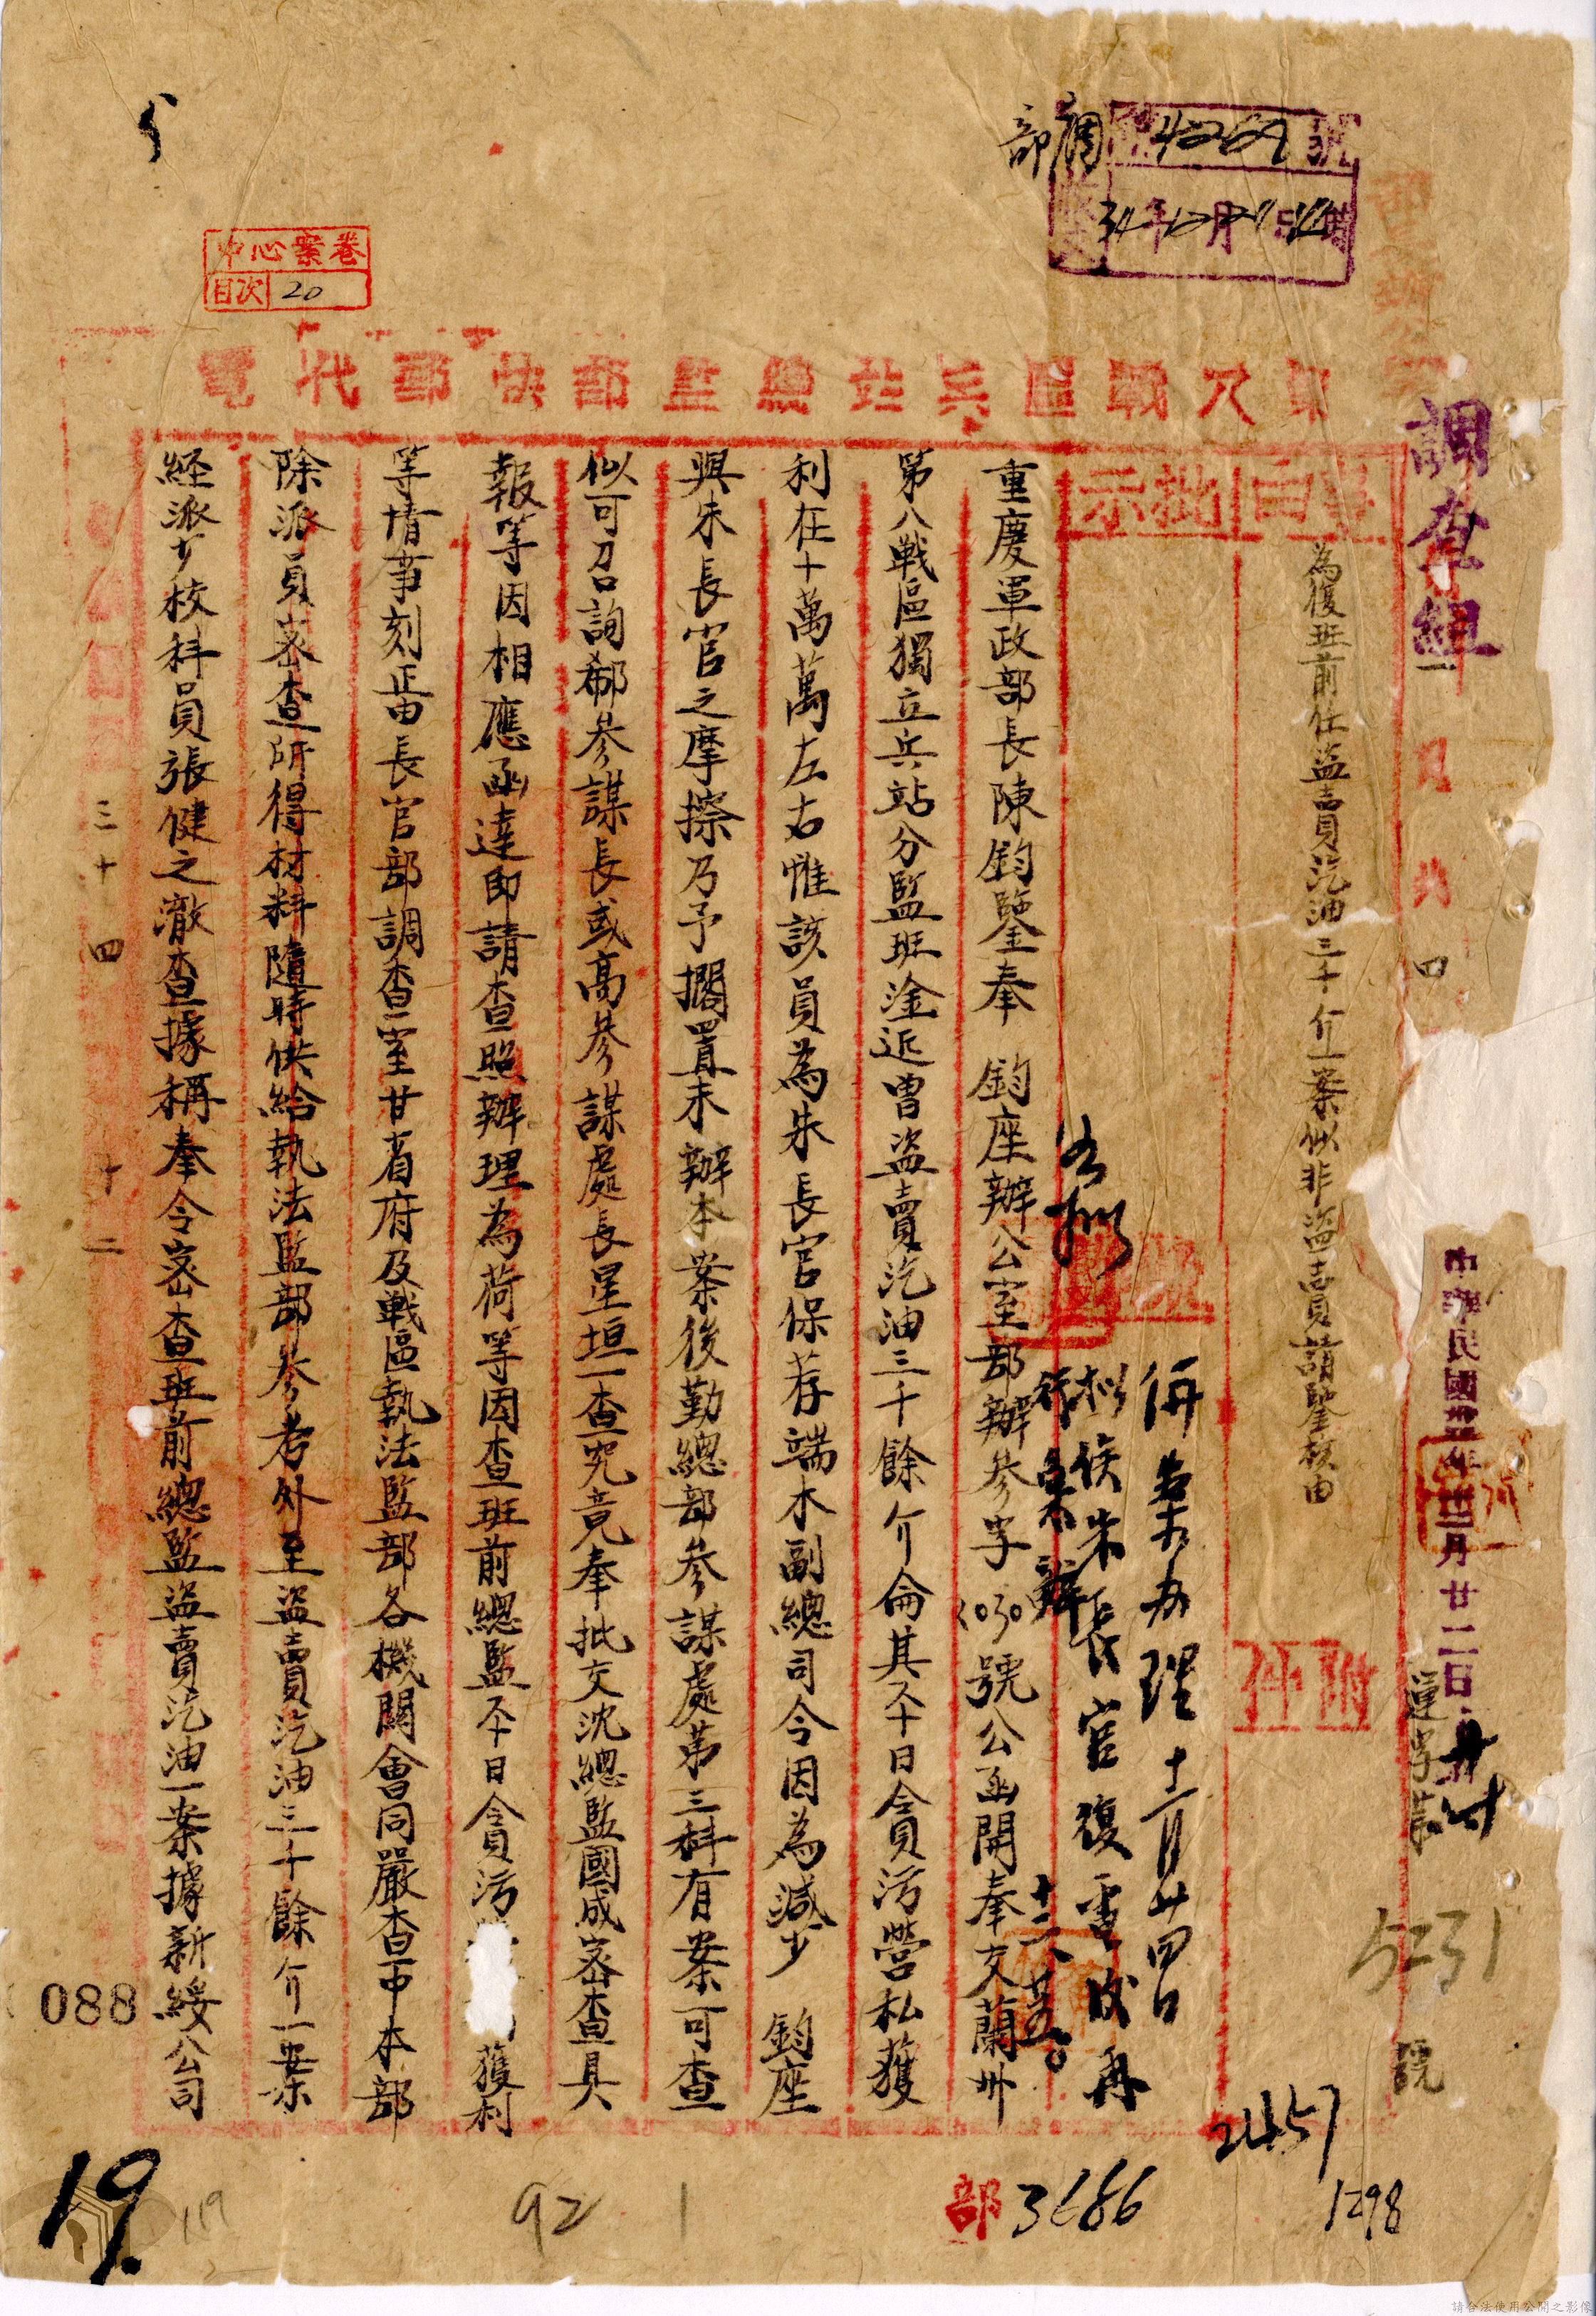 調查組
中華民國卅年十二月廿二日
運字第
5231
號
調
部
4269
號
34年12月27日
中心案卷
目次 20
第八戰區兵站總監部快郵代電
事由
批示
附件
為復班前任盜賣汽油三千介一案似非盜賣請鑒核由
併案办理 十二月廿四日
拟俟朱長官復電後再
行彙辦
如拟
十二、廿五。
重慶軍政部長陳鈞鑒奉 鈞座辦公室部辦參字 號公函開奉交蘭州
第八戰區獨立兵站分監班淦近曾盜賣汽油三千餘介侖其不日貪污營私獲
利在十萬萬左右惟該員為朱長官保荐端木副總司令因為減少 鈞座
與朱長官之摩擦乃予擱置未辦本案後勤總部參謀處第三科有案可查
似可召詢郗參謀長或高參謀處長星垣一查究竟奉批交沈總監國成密查具
報等因相應函達即請查照辦理為荷等因查班前總監不日貪污 獲利
等情事刻正由長官部調查室甘省府及戰區執法監部各機關會同嚴查中本部
除派員密查所得材料隨時供給執法監部參考外至盜賣汽油三千餘介一案
經派少校科員張健之澈查據稱奉令密查班前總監盜賣汽油一案據新綏公司
三十四 十二
088
19.
119
92
部 3686
2457
1298
請合法使用公開之影像